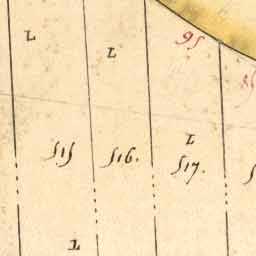 L
L
95
L
515
516.
517.
L